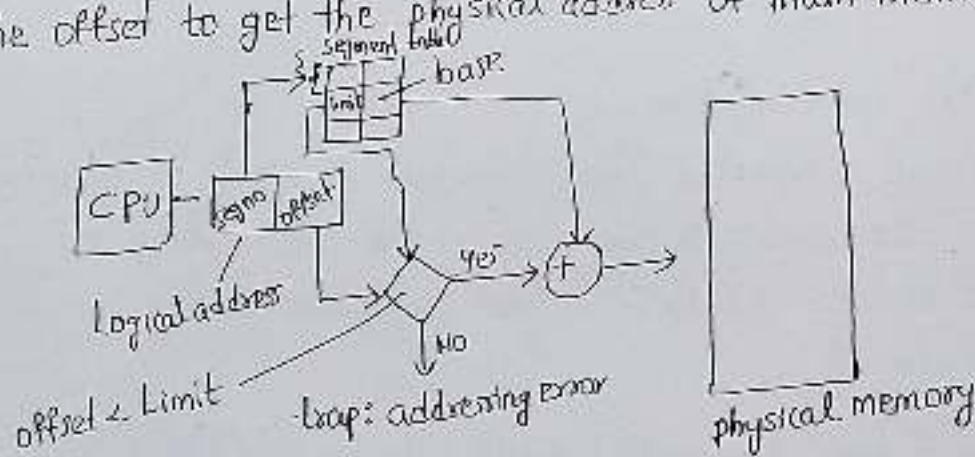 offset to get the physical address of main
segment
base
limit
CPU
segno offset
Logical address
yes
+
NO
offset < Limit
trap: addressing error
physical memory